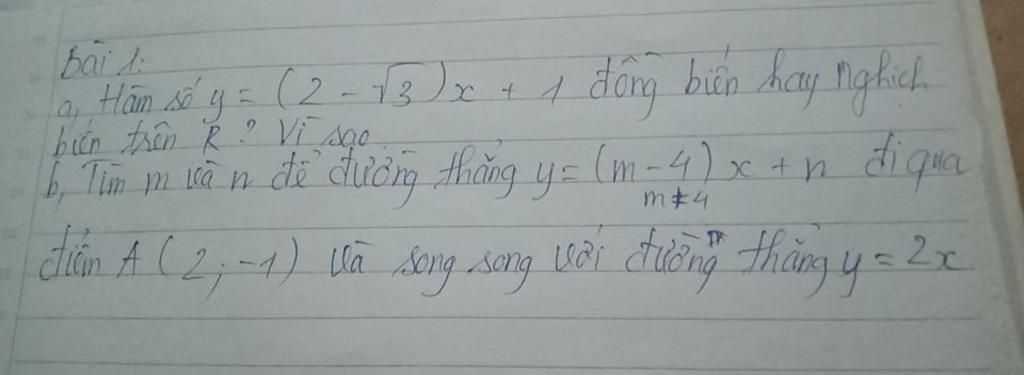 bài 1:
a, Hàm số y = (2 - √3)x + 1 đồng biến hay nghịch
biến trên R? Vì sao.
b, Tìm m và n để đường thẳng y = (m - 4)x + n đi qua
m ≠ 4
điểm A (2; -1) và song song với đường thẳng y = 2x